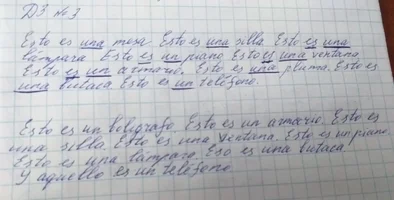 ДЗ №3
Esto es una mesa Esto es una silla. Esto es una
lámpara Esto es un piano Esto es una ventana
Esto es un armario. Esto es una pluma. Esto es
una butaca Esto es un teléfono.
Esto es un boligrafo. Esto es un armario. Esto es
una silla. Esto es una ventana. Esto es un piano
Esto es una lámpara. Eso es una butaca.
Y aquello es un teléfono